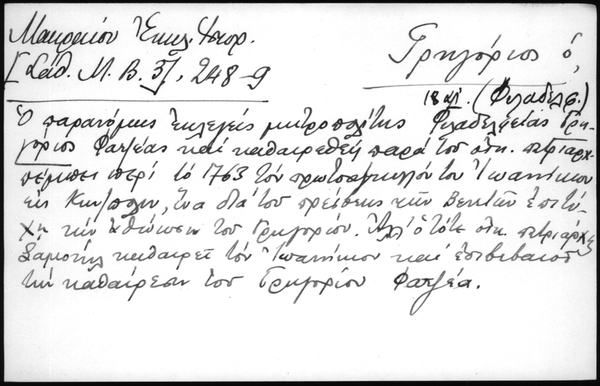 Μακραίου Ἐκκλ. Ἱστορ.
[Σάθ. Μ. Β. 3], 248-9
Γρηγόριος ὁ,
18 αἰ. (Φιλαδελφ.)
Ὁ παρανόμως ἐκλεγεὶς μητροπολίτης Φιλαδελφείας Γρη-
γόριος Φατζέας καὶ καθαιρεθεὶς παρὰ τοῦ οἰκ. πατριάρχ
πέμπει περὶ τὸ 1763 τὸν πρωτοσύγκελλόν του Ἰωαννίκιον
εἰς Κων/πολιν, ἵνα διὰ τοῦ πρέσβεως τῶν Βενετῶν ἐπιτύ-
χῃ τὴν ἀθώωσιν τοῦ Γρηγορίου. Ἀλλ' ὁ τότε οἰκ. πατριάρχης
Σαμουὴλ καθαιρεῖ τὸν Ἰωαννίκιον καὶ ἐπιβεβαιοῖ
τὴν καθαίρεσιν τοῦ Γρηγορίου Φατζέα.